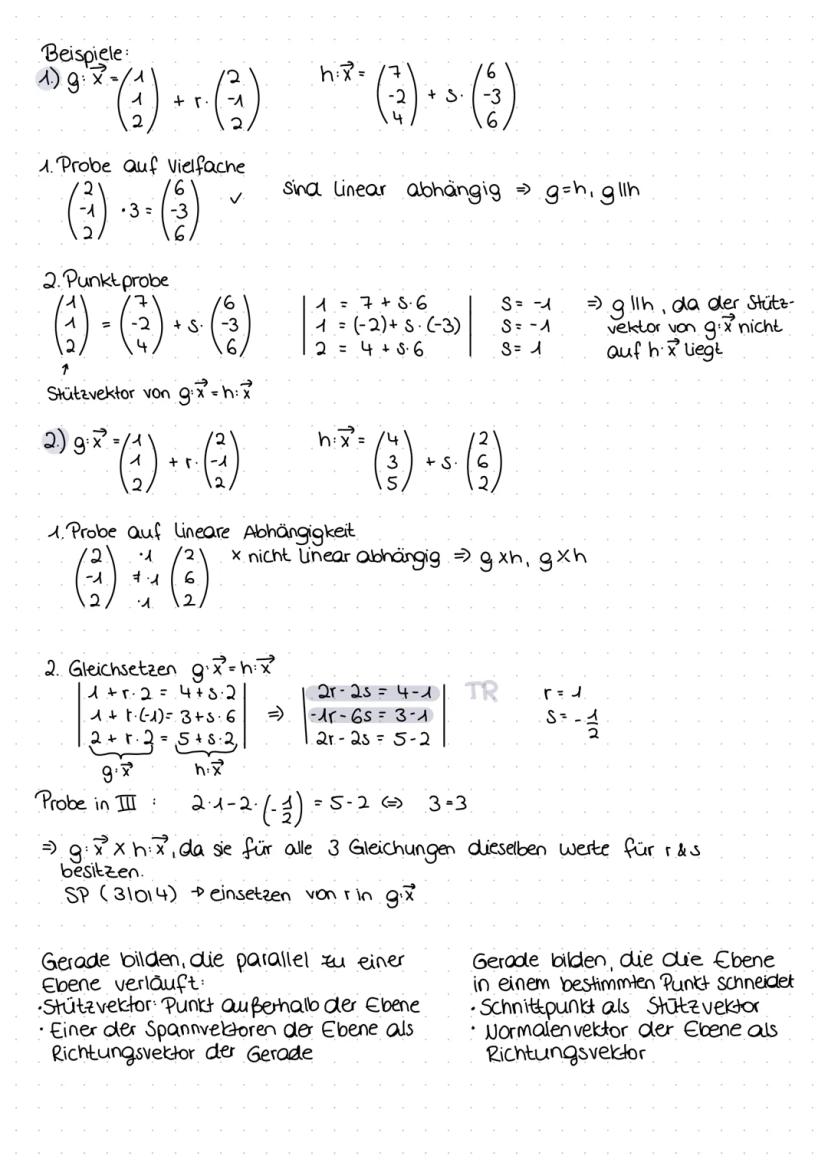 Beispiele:
1.) g: x⃗ = (1 1 2) + r · (2 -1 2)    h: x⃗ = (7 -2 4) + s · (6 -3 6)
1. Probe auf Vielfache
(2 -1 2) · 3 = (6 -3 6) ✓ sind linear abhängig ⇒ g=h, g||h
2. Punktprobe
(1 1 2) = (7 -2 4) + s · (6 -3 6)
| 1 = 7 + s·6 | s = -1
| 1 = (-2) + s·(-3) | s = -1
| 2 = 4 + s·6 | s = 1
⇒ g||h, da der Stütz-
vektor von g: x⃗ nicht
auf h: x⃗ liegt
↑
Stützvektor von g: x⃗ = h: x⃗
2.) g: x⃗ = (1 1 2) + r · (2 -1 2)    h: x⃗ = (4 3 5) + s · (2 6 2)
1. Probe auf lineare Abhängigkeit
(2 -1 2) ·1 ≠·1 ·1 (2 6 2) × nicht linear abhängig ⇒ g×h, g×h
2. Gleichsetzen g: x⃗ = h: x⃗
| 1 + r·2 = 4 + s·2 | | 2r - 2s = 4-1 | TR r = 1
| 1 + r·(-1) = 3 + s·6 | ⇒ | -1r - 6s = 3-1 | s = -1/2
| 2 + r·2 = 5 + s·2 | | 2r - 2s = 5-2 |
g: x⃗    h: x⃗
Probe in III : 2·1-2·(-1/2) = 5-2 ⇔ 3=3
⇒ g: x⃗ × h: x⃗, da sie für alle 3 Gleichungen dieselben Werte für r & s
besitzen.
SP (3|0|4) → einsetzen von r in g: x⃗
Gerade bilden, die parallel zu einer
Ebene verläuft:
·Stützvektor: Punkt außerhalb der Ebene
· Einer der Spannvektoren der Ebene als
Richtungsvektor der Gerade
Gerade bilden, die die Ebene
in einem bestimmten Punkt schneidet
· Schnittpunkt als Stützvektor
· Normalenvektor der Ebene als
Richtungsvektor